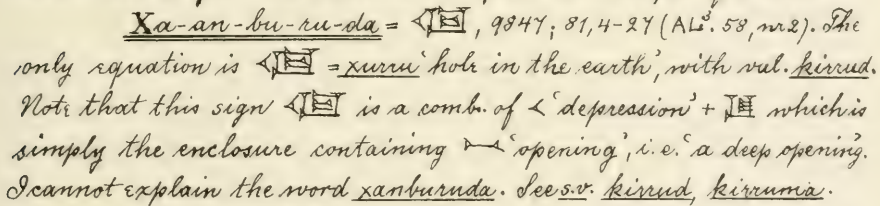 Xa-an-bu-ru-da = , 9847; 81,4-27 (AL³. 58, nr 2). The
only equation is = xurru ‘hole in the earth’, with val. kirrud.
Note that this sign is a comb. of 𒌋 ‘depression’ + which is
simply the enclosure containing ‘opening’, i.e. ‘a deep opening’.
I cannot explain the word xanburuda. See s.v. kirrud, kirruma.